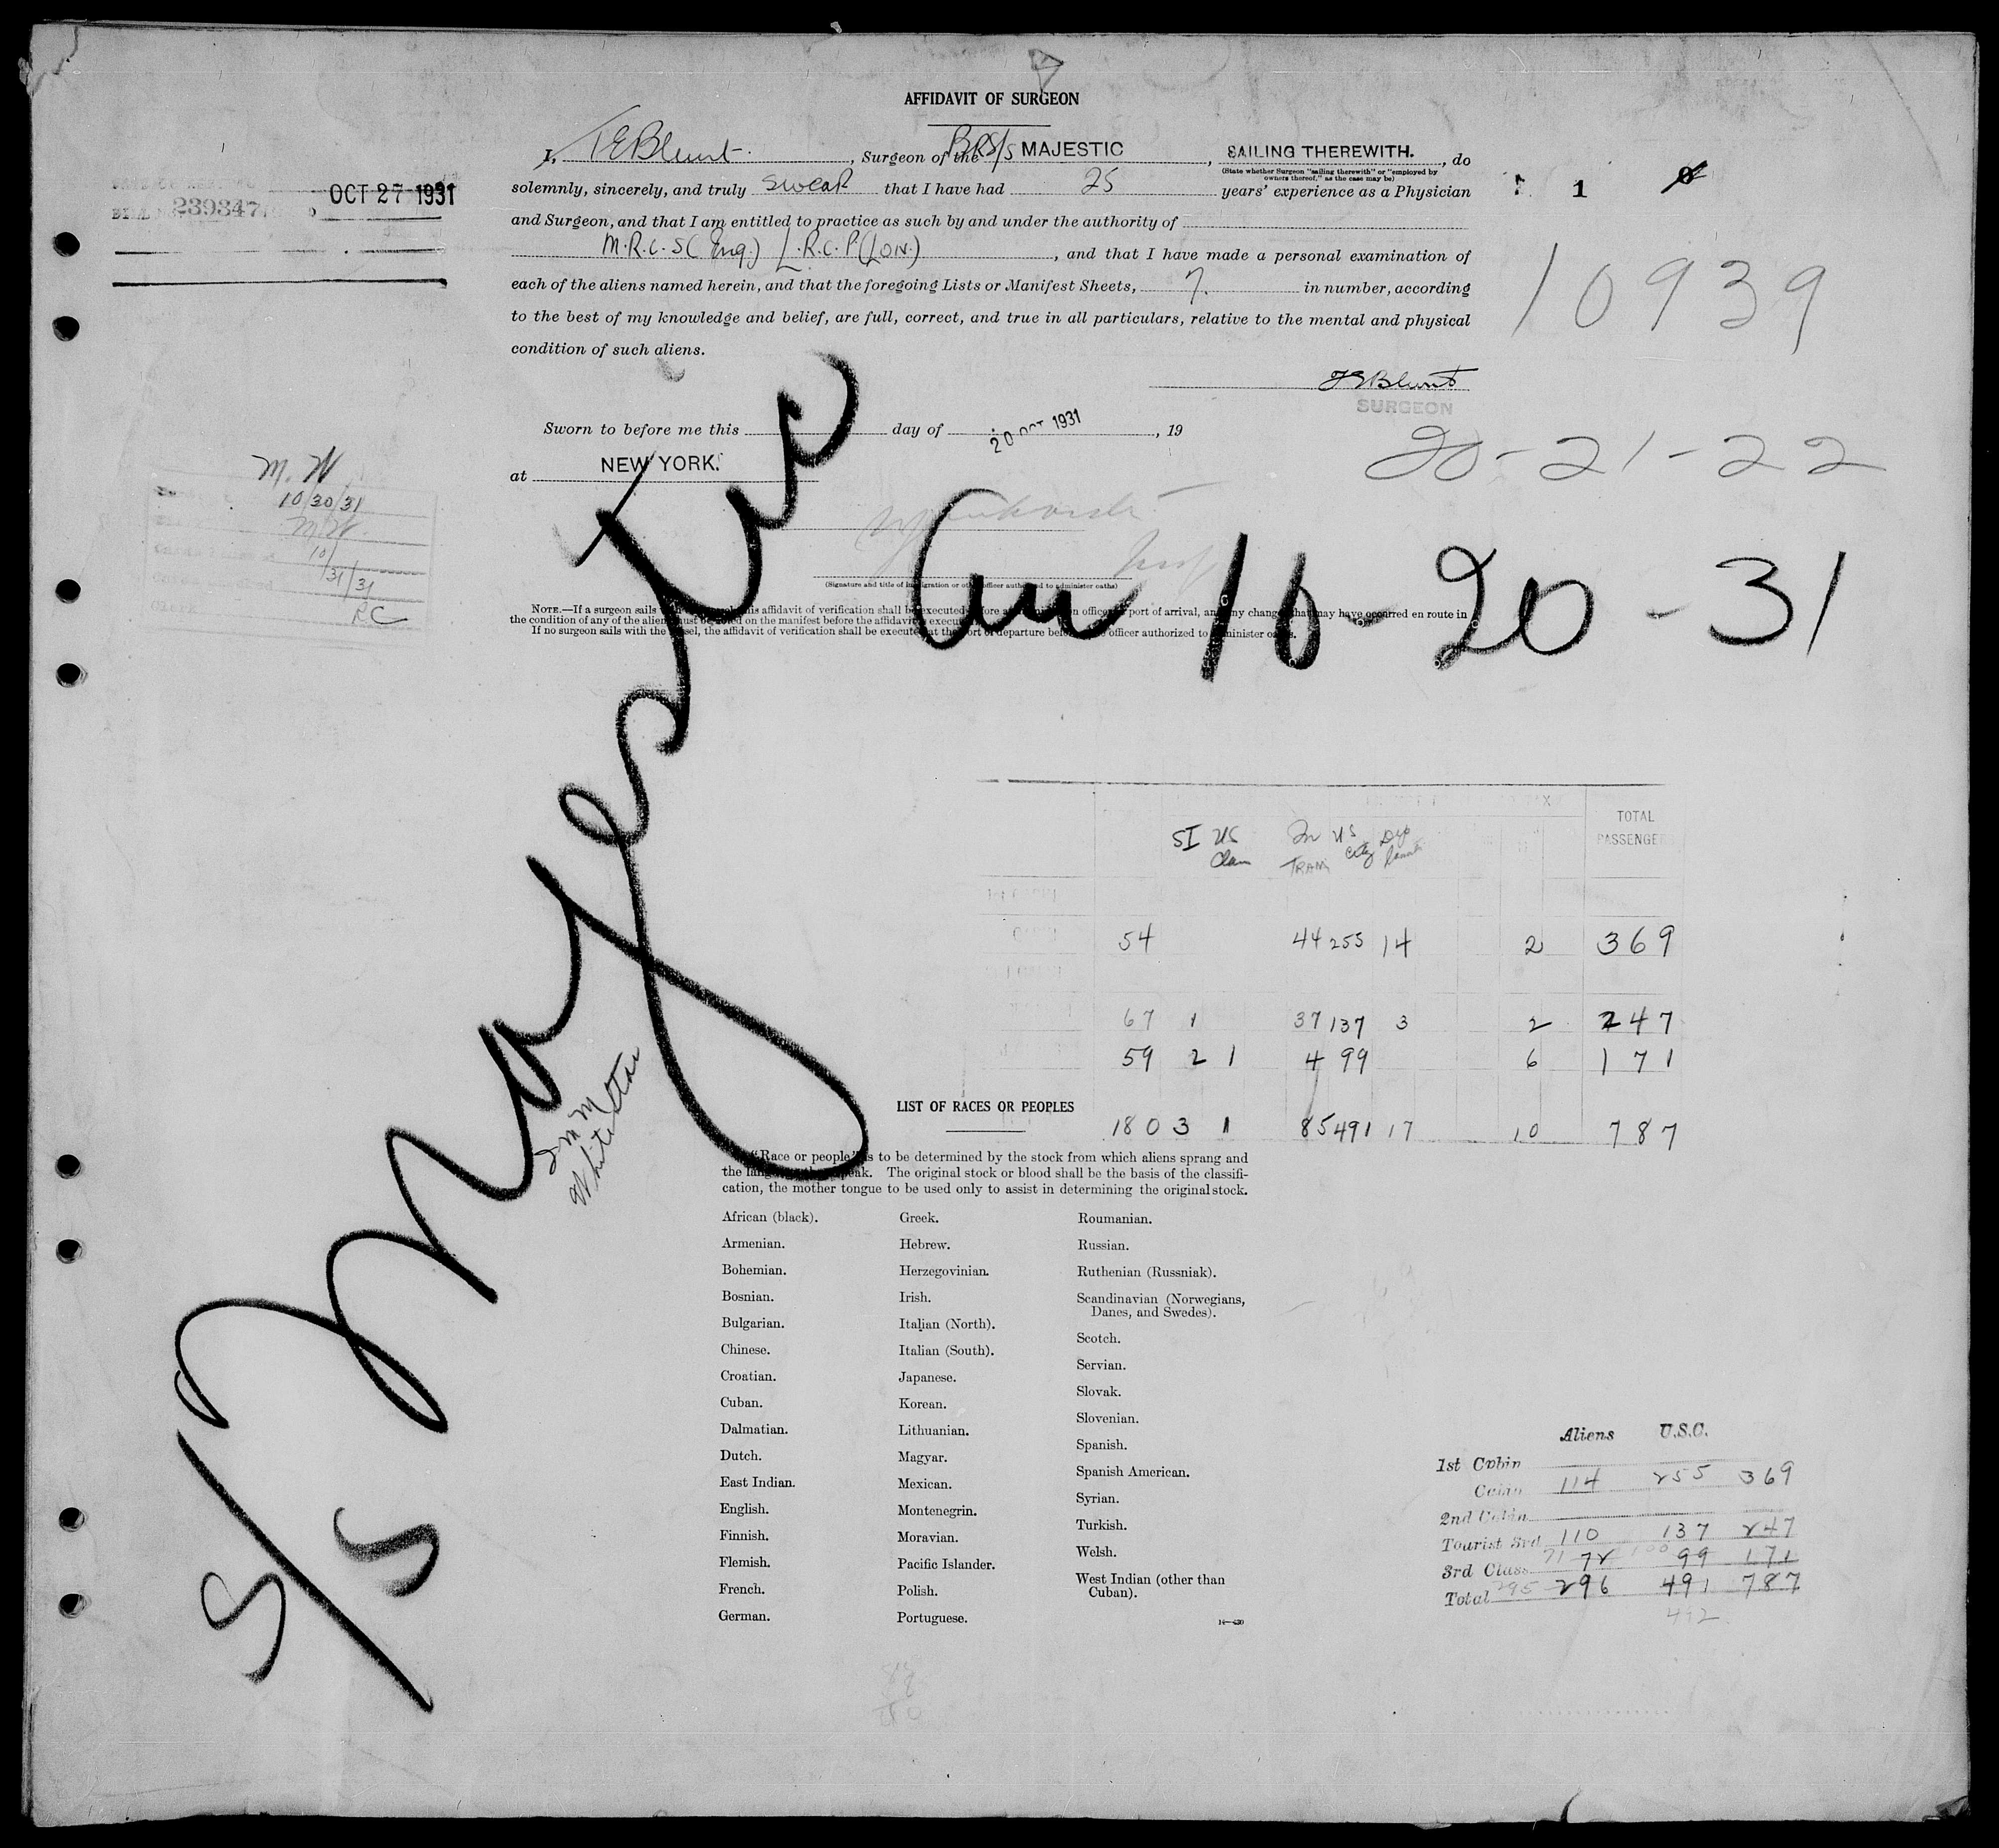 AFFIDAVIT OF SURGEON
I, T E Blunt, Surgeon of the Br S/S MAJESTIC, SAILING THEREWITH., do
(State whether Surgeon "sailing therewith" or "employed by
owners thereof," as the case may be)
solemnly, sincerely, and truly swear that I have had 25 years' experience as a Physician
and Surgeon, and that I am entitled to practice as such by and under the authority of
M.R.C.S (Eng.) L.R.C.P (Lon.), and that I have made a personal examination of
each of the aliens named herein, and that the foregoing Lists or Manifest Sheets, 7. in number, according
to the best of my knowledge and belief, are full, correct, and true in all particulars, relative to the mental and physical
condition of such aliens.
OCT 27 1931
239347
1
10939
T E Blunt
SURGEON
Sworn to before me this day of 20 OCT 1931, 19
at NEW YORK.
20-21-22
M. W
10/30/31
M.W.
10/31/31
RC
Arr 10-20-31
(Signature and title of immigration or other officer authorized to administer oaths)
NOTE.—If a surgeon sails with the vessel, this affidavit of verification shall be executed before an immigration officer at port of arrival, and any change that may have occurred en route in
the condition of any of the aliens must be noted on the manifest before the affidavit is executed.
If no surgeon sails with the vessel, the affidavit of verification shall be executed at the port of departure before an officer authorized to administer oaths.
S/S Majestic
I M M
White Star
TOTAL
PASSENGE
SI US In US Dip
Clam TRAN City
54 44 255 14 2 369
67 1 37 137 3 2 247
59 2 1 4 99 6 171
180 3 1 85 491 17 10 787
LIST OF RACES OR PEOPLES
"Race or people" is to be determined by the stock from which aliens sprang and
the language they speak. The original stock or blood shall be the basis of the classifi-
cation, the mother tongue to be used only to assist in determining the original stock.
African (black).
Armenian.
Bohemian.
Bosnian.
Bulgarian.
Chinese.
Croatian.
Cuban.
Dalmatian.
Dutch.
East Indian.
English.
Finnish.
Flemish.
French.
German.
Greek.
Hebrew.
Herzegovinian.
Irish.
Italian (North).
Italian (South).
Japanese.
Korean.
Lithuanian.
Magyar.
Mexican.
Montenegrin.
Moravian.
Pacific Islander.
Polish.
Portuguese.
Roumanian.
Russian.
Ruthenian (Russniak).
Scandinavian (Norwegians,
Danes, and Swedes).
Scotch.
Servian.
Slovak.
Slovenian.
Spanish.
Spanish American.
Syrian.
Turkish.
Welsh.
West Indian (other than
Cuban).
Aliens U.S.C.
1st Cabin
Cabin 114 255 369
2nd Cabin
Tourist 3rd 110 137 247
3rd Class 71 72 100 99 171
Total 295 296 491 787
492